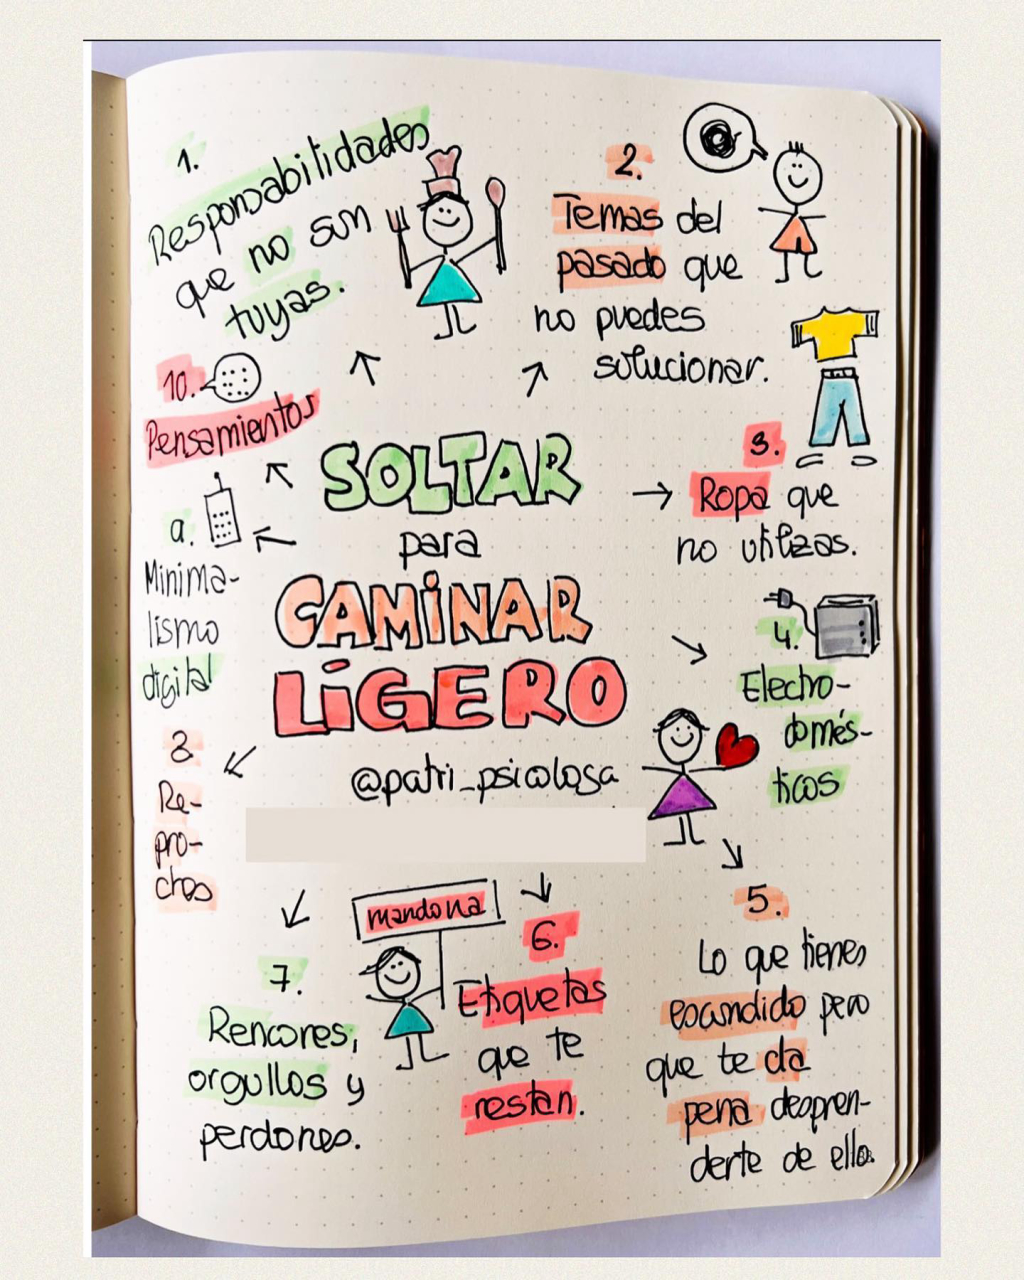 SOLTAR
para
CAMINAR
LIGERO
@patri_psicologa
1.
Responsabilidades
que no son
tuyas.
2.
Temas del
pasado que
no puedes
solucionar.
3.
Ropa que
no utilizas.
4.
Electro-
domés-
ticos
5.
Lo que tienes
escondido pero
que te da
pena despren-
derte de ello.
6.
Etiquetas
que te
restan.
mandona
7.
Rencores,
orgullos y
perdones.
8.
Re-
pro-
ches
9.
Minima-
lismo
digital
10.
Pensamientos